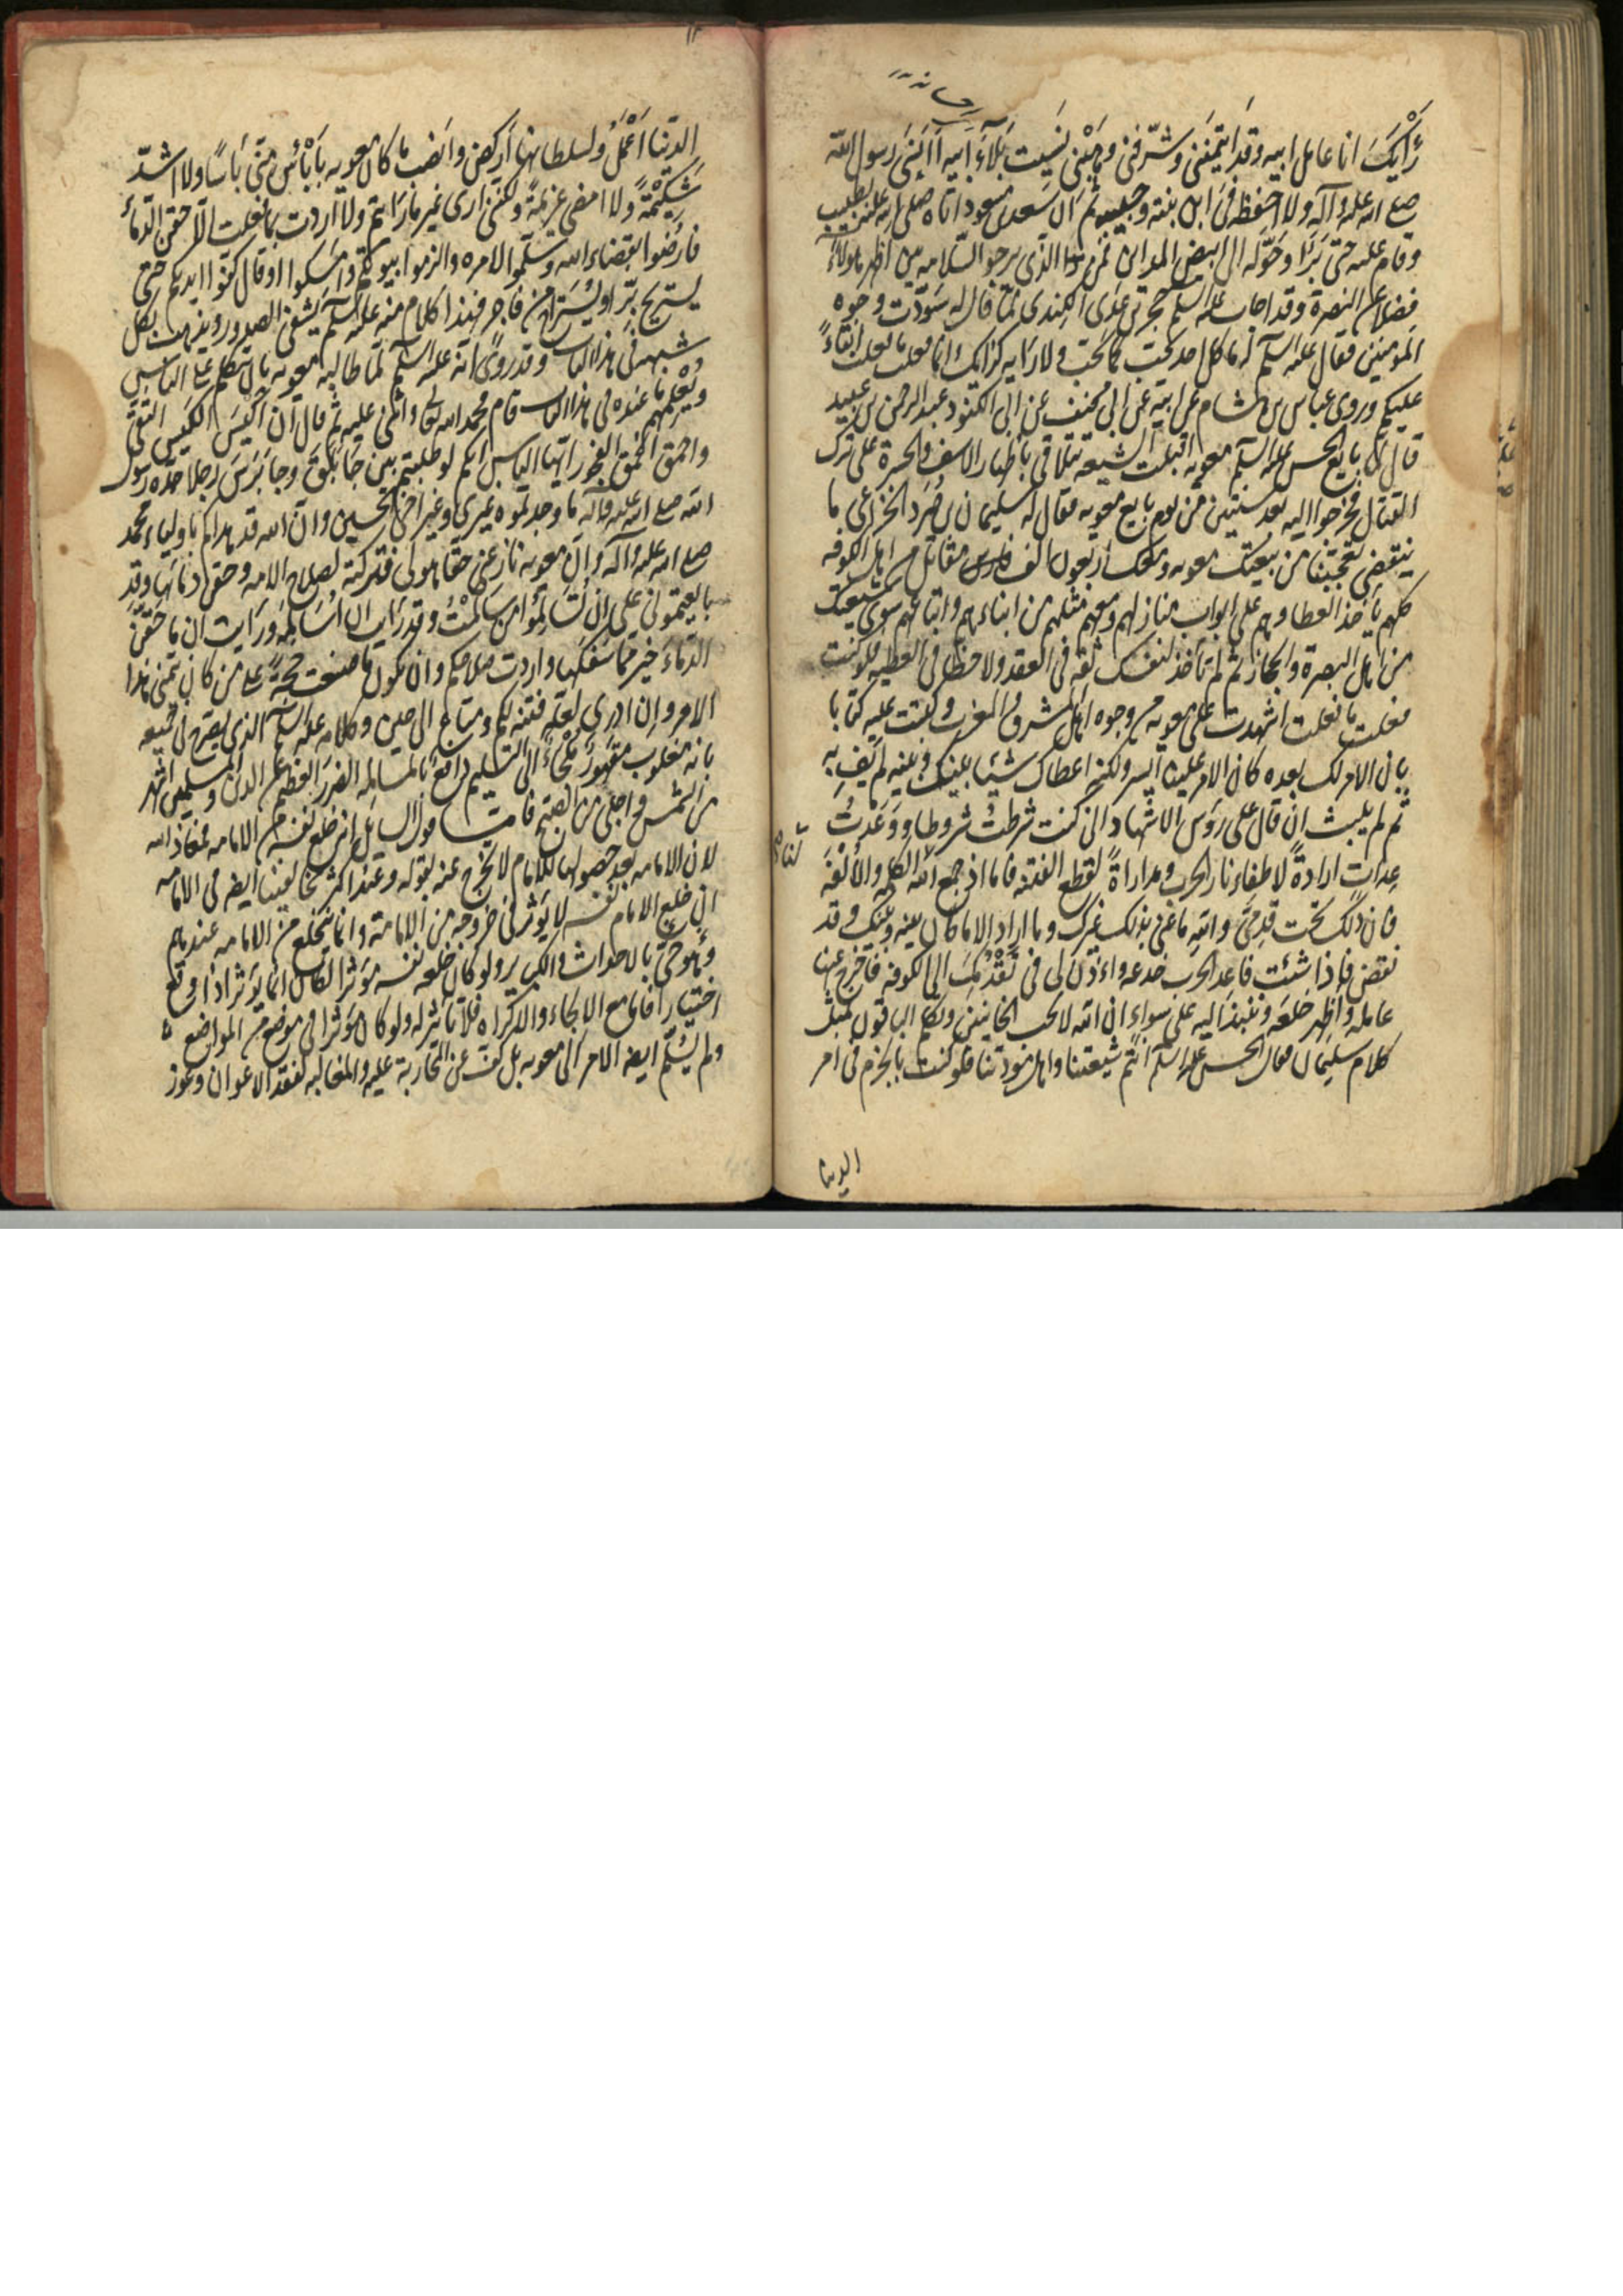 رأيك انا عامل ابيه وقد ائتمنني وشرفني وهبني نسيت بلاء ابيه أأنسى رسول الله
صلى الله عليه وآله ولا احفظه في ابن بنته وحبيبه ثم ان سعد بن مسعود اتاه صلى الله عليه بطبيب
وقام عليه حتى برأ وحوله الى ابيض المداين فمن الذي يرجو السلامة بين اظهر هؤلاء
فضلا عن النصرة وقد اجاب عليه السلم حجر بن عدي الكندي لما قال له سودت وجوه
المؤمنين فقال عليه السلم له ما كل احد يحب ما تحب ولا رايه كرأيك وانما فعلت ما فعلت ابقاء
عليكم وروى عباس بن هشام عن ابيه عن ابي مخنف عن ابي الكنود عبد الرحمن بن عبيد
قال لما بايع الحسن عليه السلم معويه اقبلت الشيعة تتلاقى باظهار الاسف والحسرة على ترك
القتال فخرجوا اليه بعد سنتين من يوم بايع معويه فقال له سليمان بن صرد الخزاعي ما
ينقضي تعجبنا من بيعتك معويه ومعك اربعون الف مقاتل من اهل الكوفه
كلهم يأخذ العطا وهم على ابواب منازلهم ومعهم مثلهم من ابنائهم واتباعهم سوى شيعتك
من اهل البصرة والحجاز ثم لم تأخذ لنفسك ثقه في العقد ولا حظا في العطيه فلو كنت
فعلت ما فعلت اشهدت على معويه من وجوه اهل المشرق والمغرب وكتبت عليه كتابا
بان الامر لك بعده كان الامر علينا ايسر ولكنه اعطاك شيئا بينك وبينه لم يف به
ثم لم يلبث ان قال على رؤس الاشهاد اني كنت شرطت شروطا ووعدت
عدات ارادة لاطفاء نار الحرب ومداراة لقطع الفتنه فاما اذ جمع الله لنا الكلمه والالفة
فان ذلك تحت قدمي والله ما عنى بذلك غيرك وما اراد الا ما كان بينه وبينك وقد
نقض فاذا شئت فاعد الحرب خدعه وائذن لي في تقدمك الى الكوفه فاخرج عنها
عامله واظهر خلعه وننبذ اليه على سواء ان الله لا يحب الخائنين وتكلم الباقون بمثل
كلام سليمان فقال الحسن عليه السلم انتم شيعتنا واهل مودتنا فلو كنت بالحزم في امر
الدنيا
الدنيا اعمل ولسلطانها اركض وانصب ما كان معويه بابأس مني بأسا ولا اشد
شكيمة ولا امضى عزيمة ولكني ارى غير ما رايتم ولا اردت بما فعلت الا حقن الدماء
فارضوا بقضاء الله وسلموا لامره والزموا بيوتكم وامسكوا او قال كفوا ايديكم حتى
يستريح بر او يستراح من فاجر فهذا كلام منه عليه السلم يشفي الصدور ويذهب بكل
شبهه في هذا الباب وقد روى انه عليه السلم لما طالبه معويه بان يتكلم على الناس
ويعلمهم ما عنده في هذا الباب قام فحمد الله تعالى واثنى عليه ثم قال ان اكيس الكيس التقى
واحمق الحمق الفجور ايها الناس انكم لو طلبتم بين جابلق وجابرس رجلا جده رسول
الله صلى الله عليه وآله ما وجدتموه غيري وغير اخي الحسين وان الله قد هداكم باولياء محمد
صلى الله عليه وآله وان معويه نازعني حقا هو لي فتركته لصلاح الامه وحقن دمائها وقد
بايعتموني على ان تسالموا من سالمت وقد رايت ان اسالمه ورايت ان ما حقن
الدماء خير مما سفكها واردت صلاحكم وان يكون ما صنعت حجة على من كان يتمنى هذا
الامر وان ادري لعله فتنه لكم ومتاع الى حين وكلامه عليه السلم الذي يصرح في جميعه
بانه مغلوب مقهور ملجأ الى التسليم دافع بالمسالمه الضرر العظيم عن الدين والمسلمين اشهر
من الشمس واجلى من الصبح فاما قول السائل انه خلع نفسه من الامامه فمعاذ الله
لان الامامه بعد حصولها للامام لا يخرج عنه بقوله وعند اكثر مخالفينا ايضا في الامامه
ان خلع الامام نفسه لا يؤثر في خروجه من الامامة وانما ينخلع من الامامه عندهم
وهو حي بالاحداث والكباير ولو كان خلعه نفسه مؤثرا لكان انما يؤثر اذا وقع
اختيارا فاما مع الالجاء والاكراه فلا تاثير له ولو كان مؤثرا في موضع من المواضع
ولم يسلم ايضا الامر الى معويه بل كف عن المحاربة عليه والمغالبه لفقد الاعوان وعوز